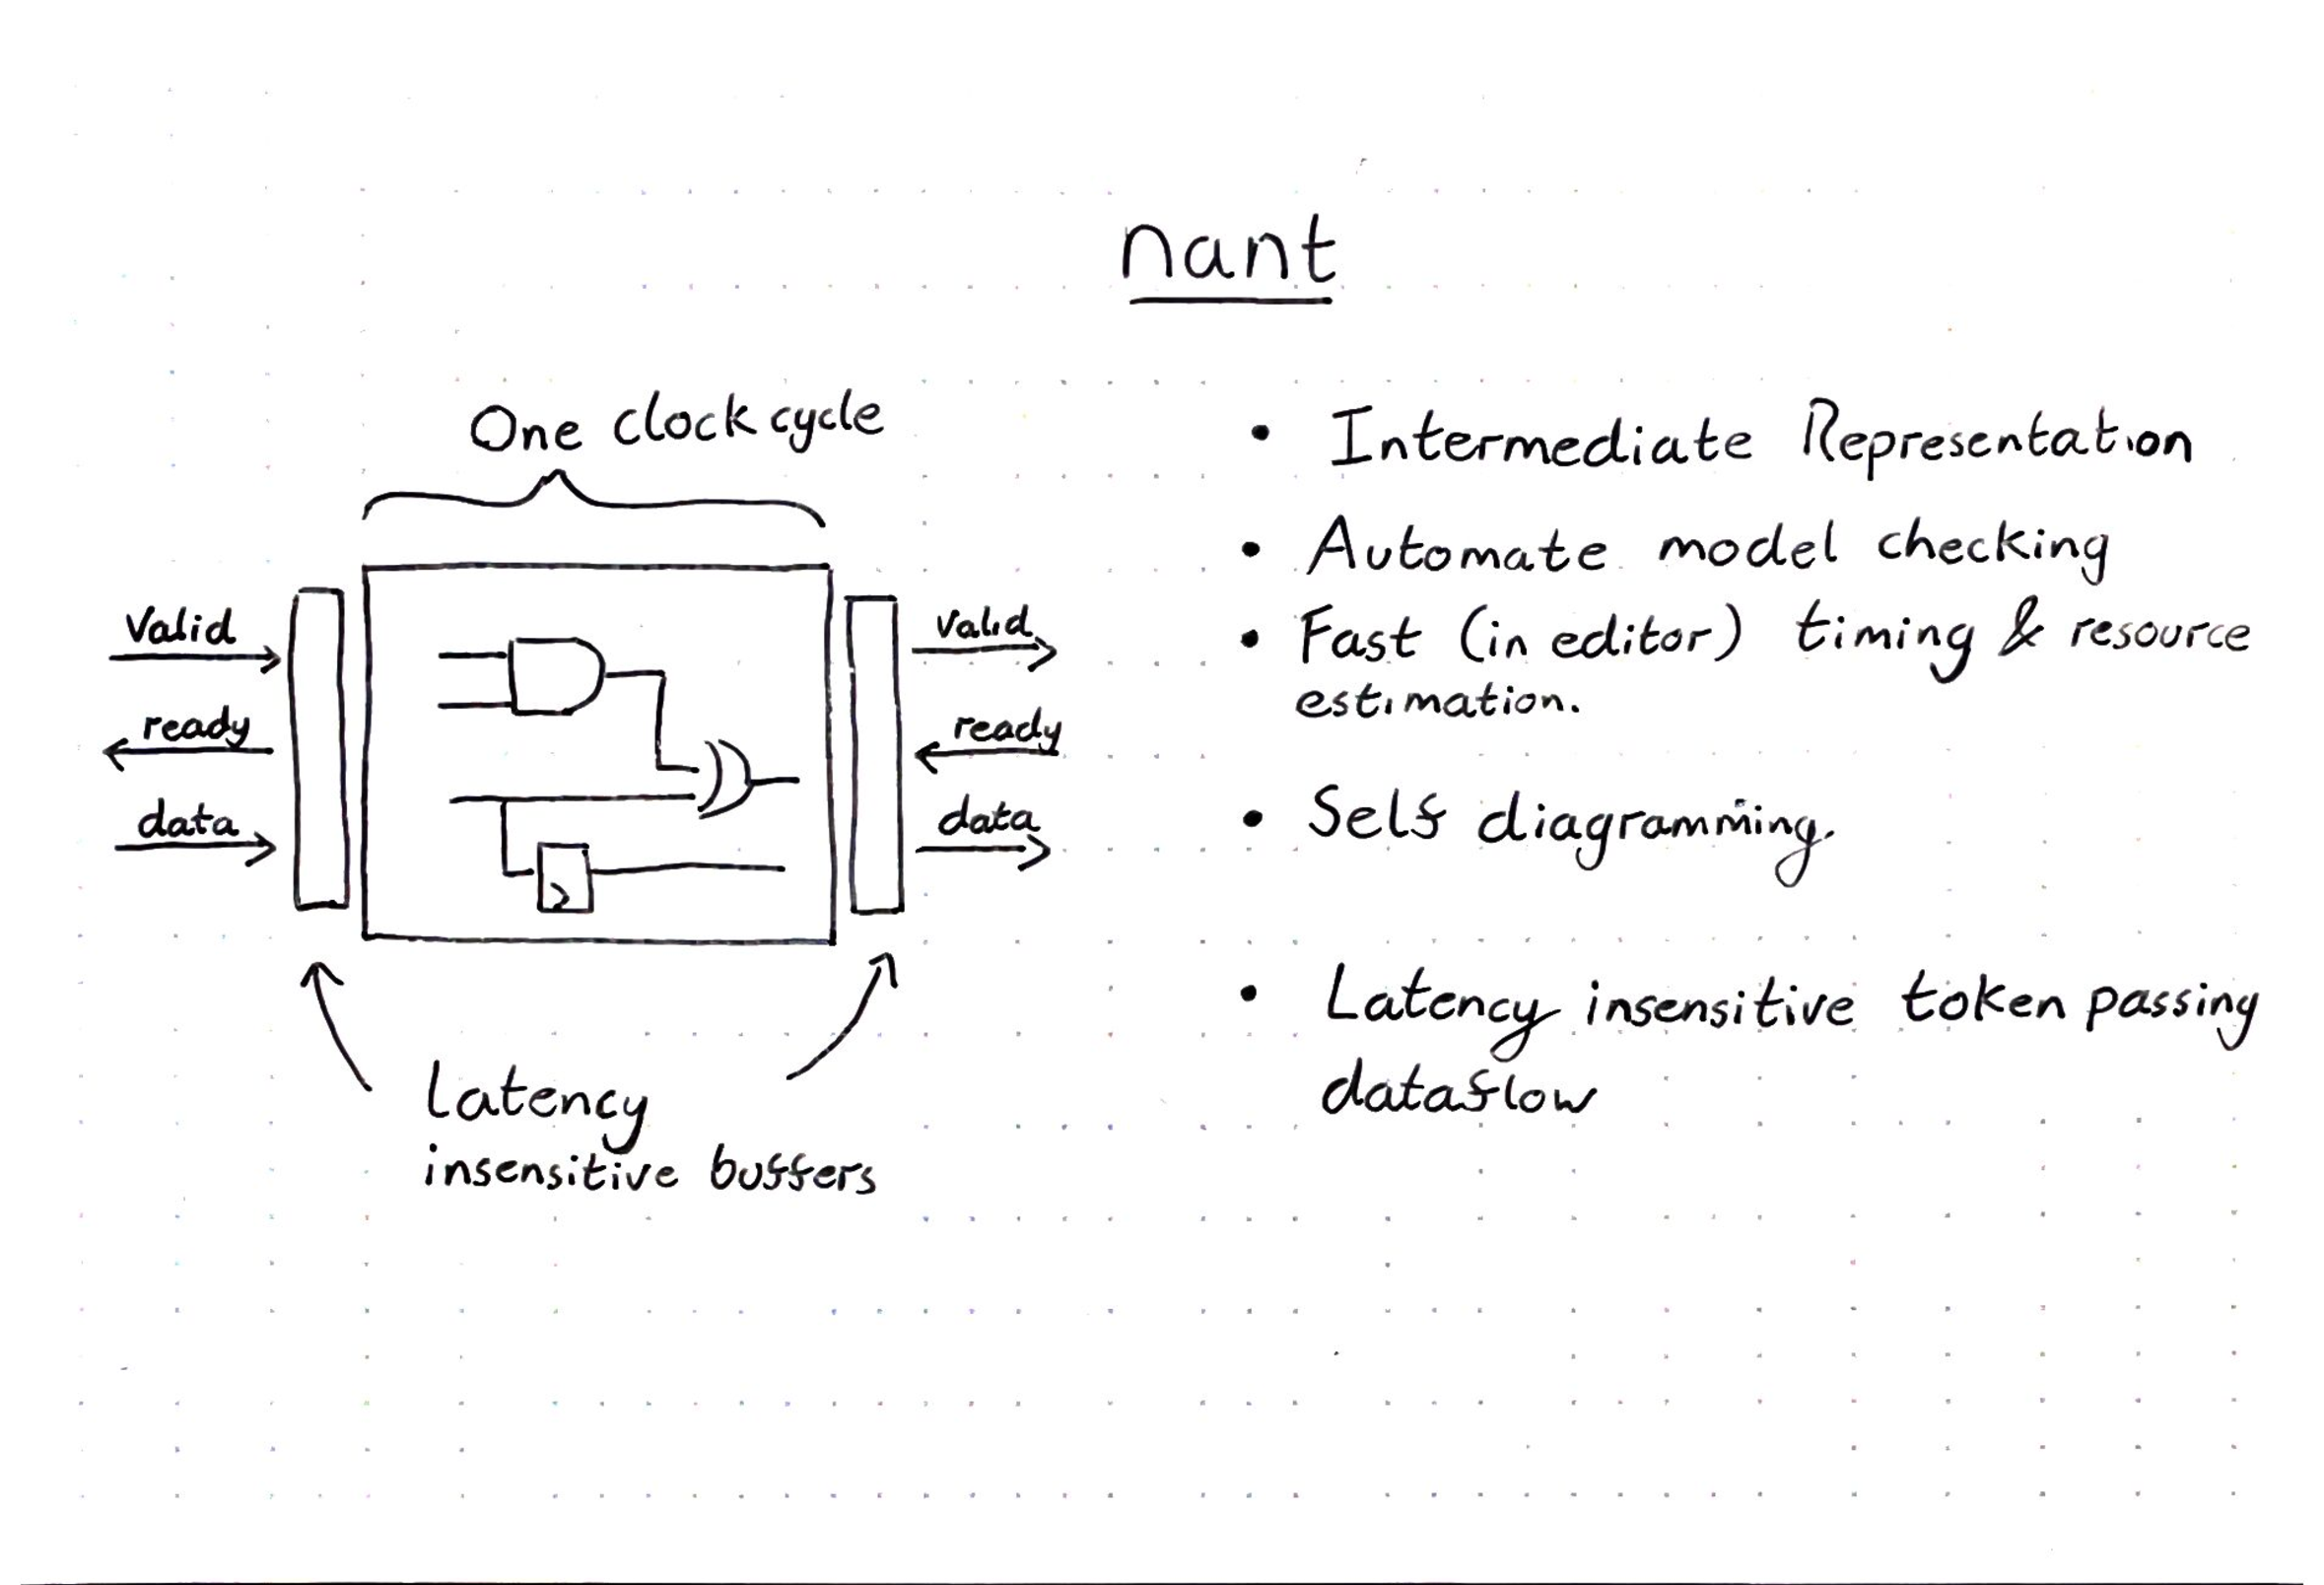 nant
One clock cycle
Valid
ready
data
valid
ready
data
Latency
insensitive buffers
• Intermediate Representation
• Automate model checking
• Fast (in editor) timing & resource
estimation.
• Self diagramming.
• Latency insensitive token passing
dataflow